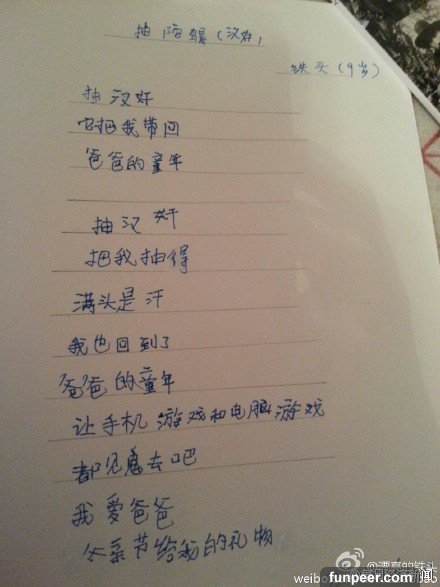 抽陀螺（汉奸）
铁头（9岁）
抽汉奸
它把我带回
爸爸的童年
抽汉奸
把我抽得
满头是汗
我也回到了
爸爸的童年
让手机游戏和电脑游戏
都见鬼去吧
我爱爸爸
父亲节给我的礼物
weibo
funpeer.com
@漂亮的铁头